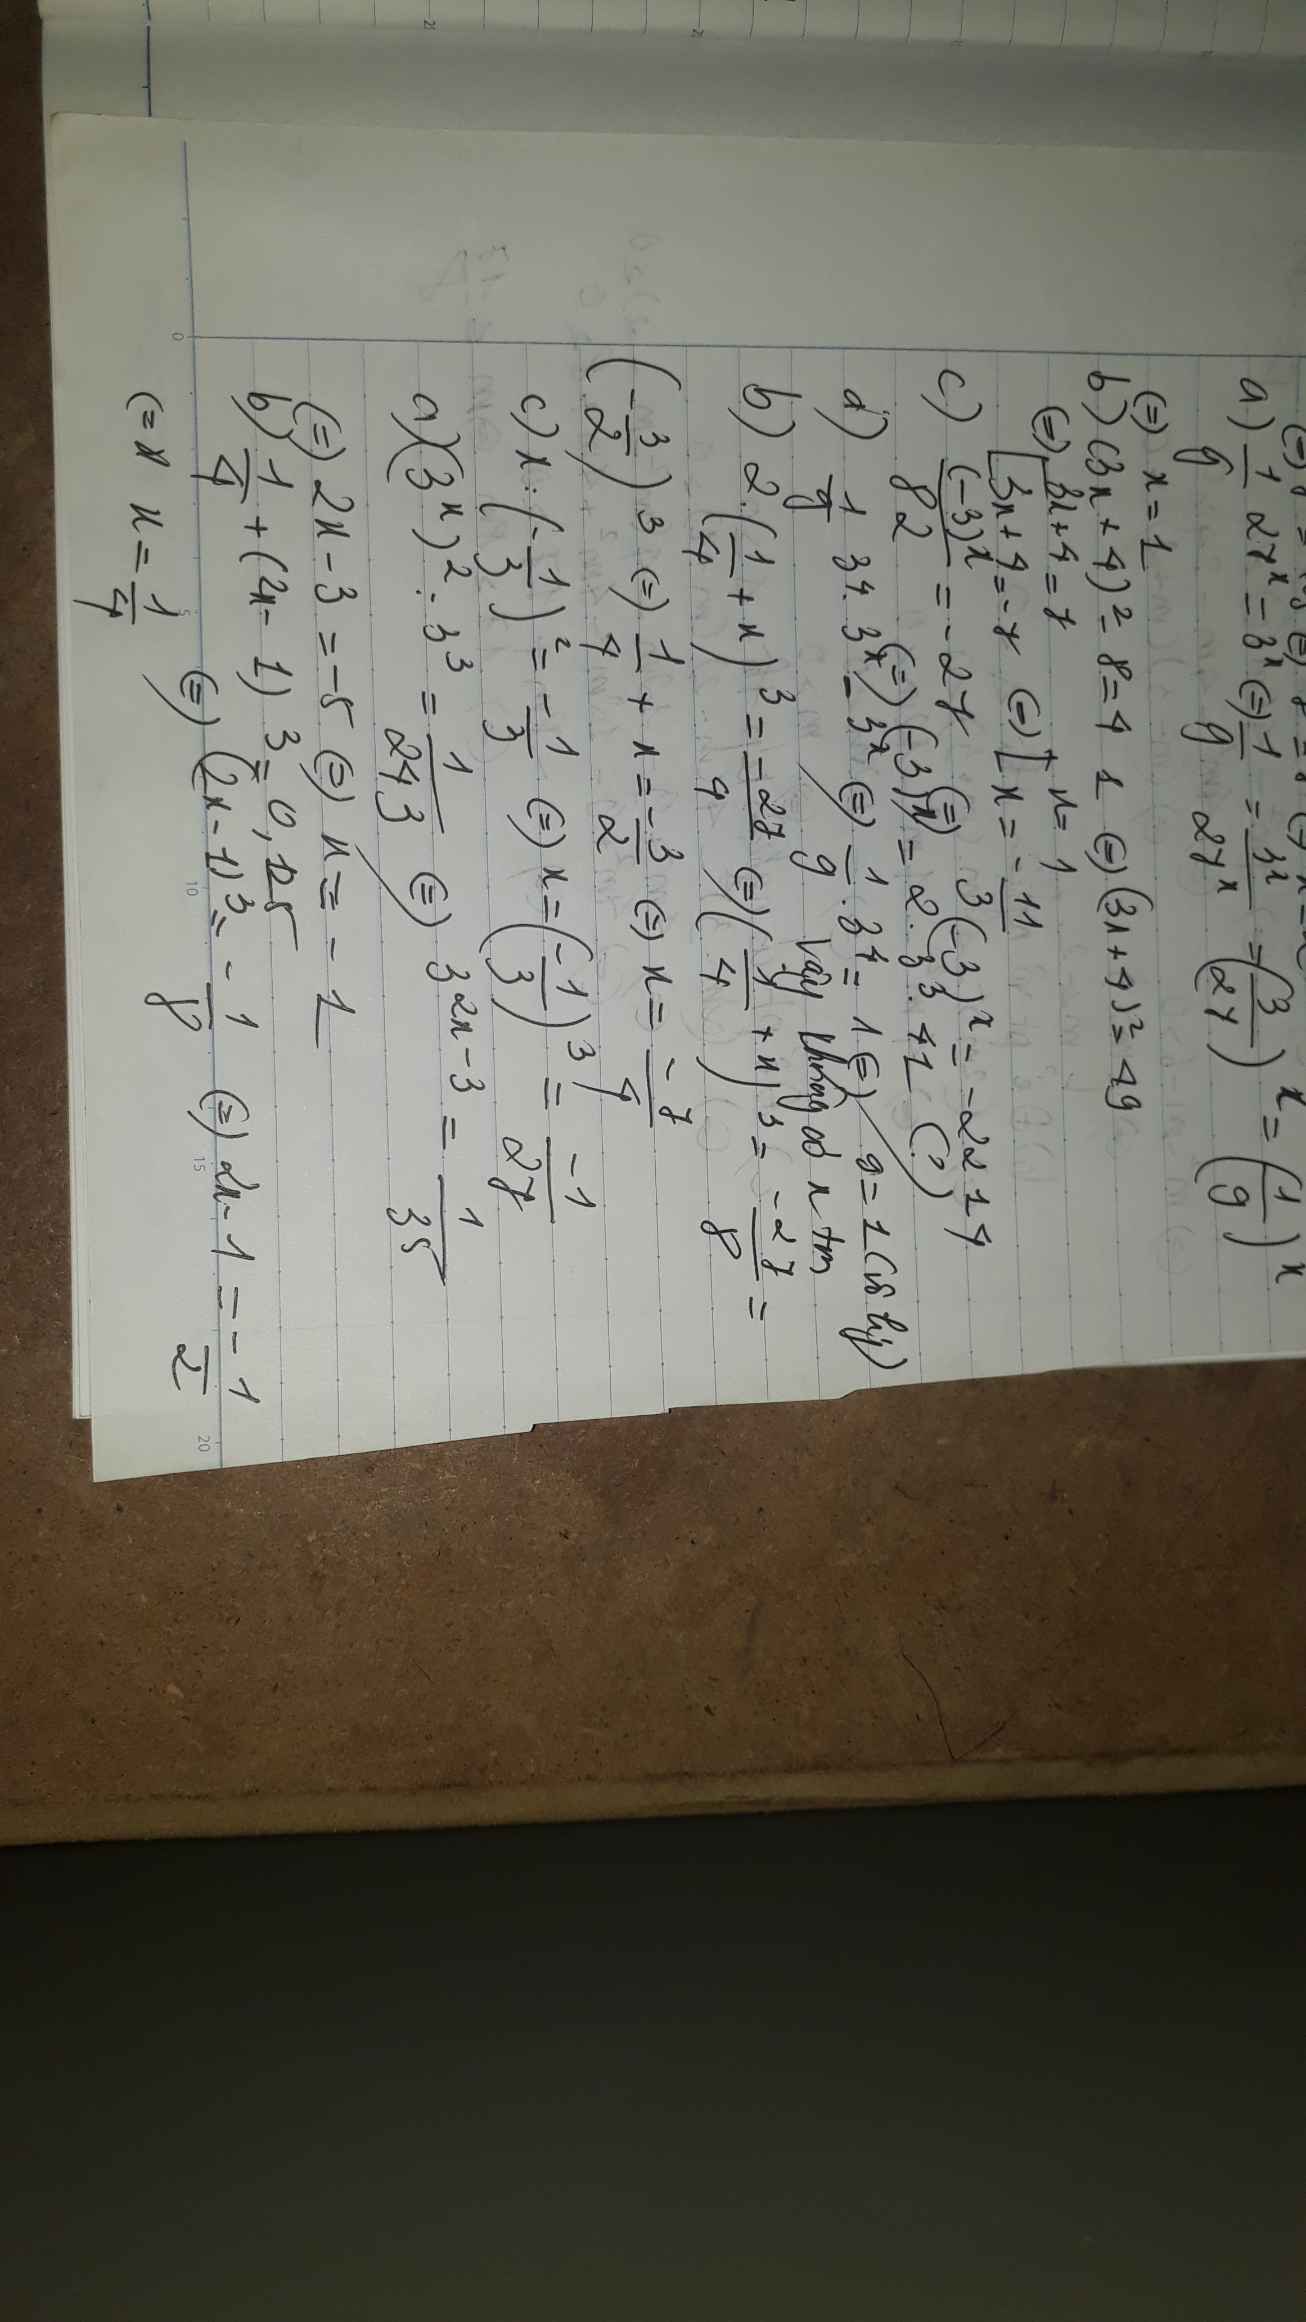 a) 1/9 27^x = 3^x (=) 1/9 = 3^x/27^x = (3/27)^x = (1/9)^x
(=) x = 1
b) (3x + 4)² - 8 = 4 1 (=) (3x + 4)² = 49
(=) [3x + 4 = 7
[3x + 4 = -7 (=) [x = 1
x = -11/3
c) (-3)^x/82 = -27 (=) (-3)^x = -2214
(=) (-3)^x = 2.3³.41 (?)
d) 1/9 3⁴. 3^x = 3^x (=) 1/9 . 3⁴ = 1 (=) 9 = 1 (vô lý)
Vậy không có x tm
b) 2.(1/4 + x)³ = -27/4 (=) (1/4 + x)³ = -27/8 =
(-3/2)³ (=) 1/4 + x = -3/2 (=) x = -7/4
c) x : (-1/3)² = -1/3 (=) x = (-1/3)³ = -1/27
a) (3^x)² : 3³ = 1/243 (=) 3^2x-3 = 1/3⁵
(=) 2x - 3 = -5 (=) x = -1
b) 1/4 + (2x - 1)³ = 0,125
(=) (2x - 1)³ = -1/8 (=) 2x - 1 = -1/2
(= x x = 1/4